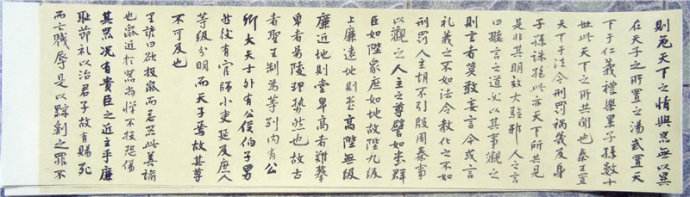 則危天下之情與器無以異
在天子之所置之湯武置天
下于仁義禮樂累子孫數十
世此天下之所共聞也秦王置
天下于法令刑罰禍幾及身
子孫誅絕此亦天下所共見
是非其明效大驗邪人之言
曰聽言之道必以其事觀之
則言者莫敢妄言今或言
禮義之不如法令教化之不如
刑罰人主胡不引殷周秦事
以觀之人主之尊譬如堂群
臣如陛眾庶如地故陛九級
上廉遠地則堂高陛無級
廉近地則堂卑高者難攀
卑者易陵理勢然也故古
者聖王制為等列內有公
卿大夫士外有公侯伯子男
然後有官師小吏延及庶人
等級分明而天子焉故其尊
不可及也
里諺曰欲投鼠而忌器此善諭
也鼠近于器尚憚不投恐傷
其器況有貴臣之近主乎廉
恥節禮以治君子故有賜死
而亡戮辱是以黥劓之罪不